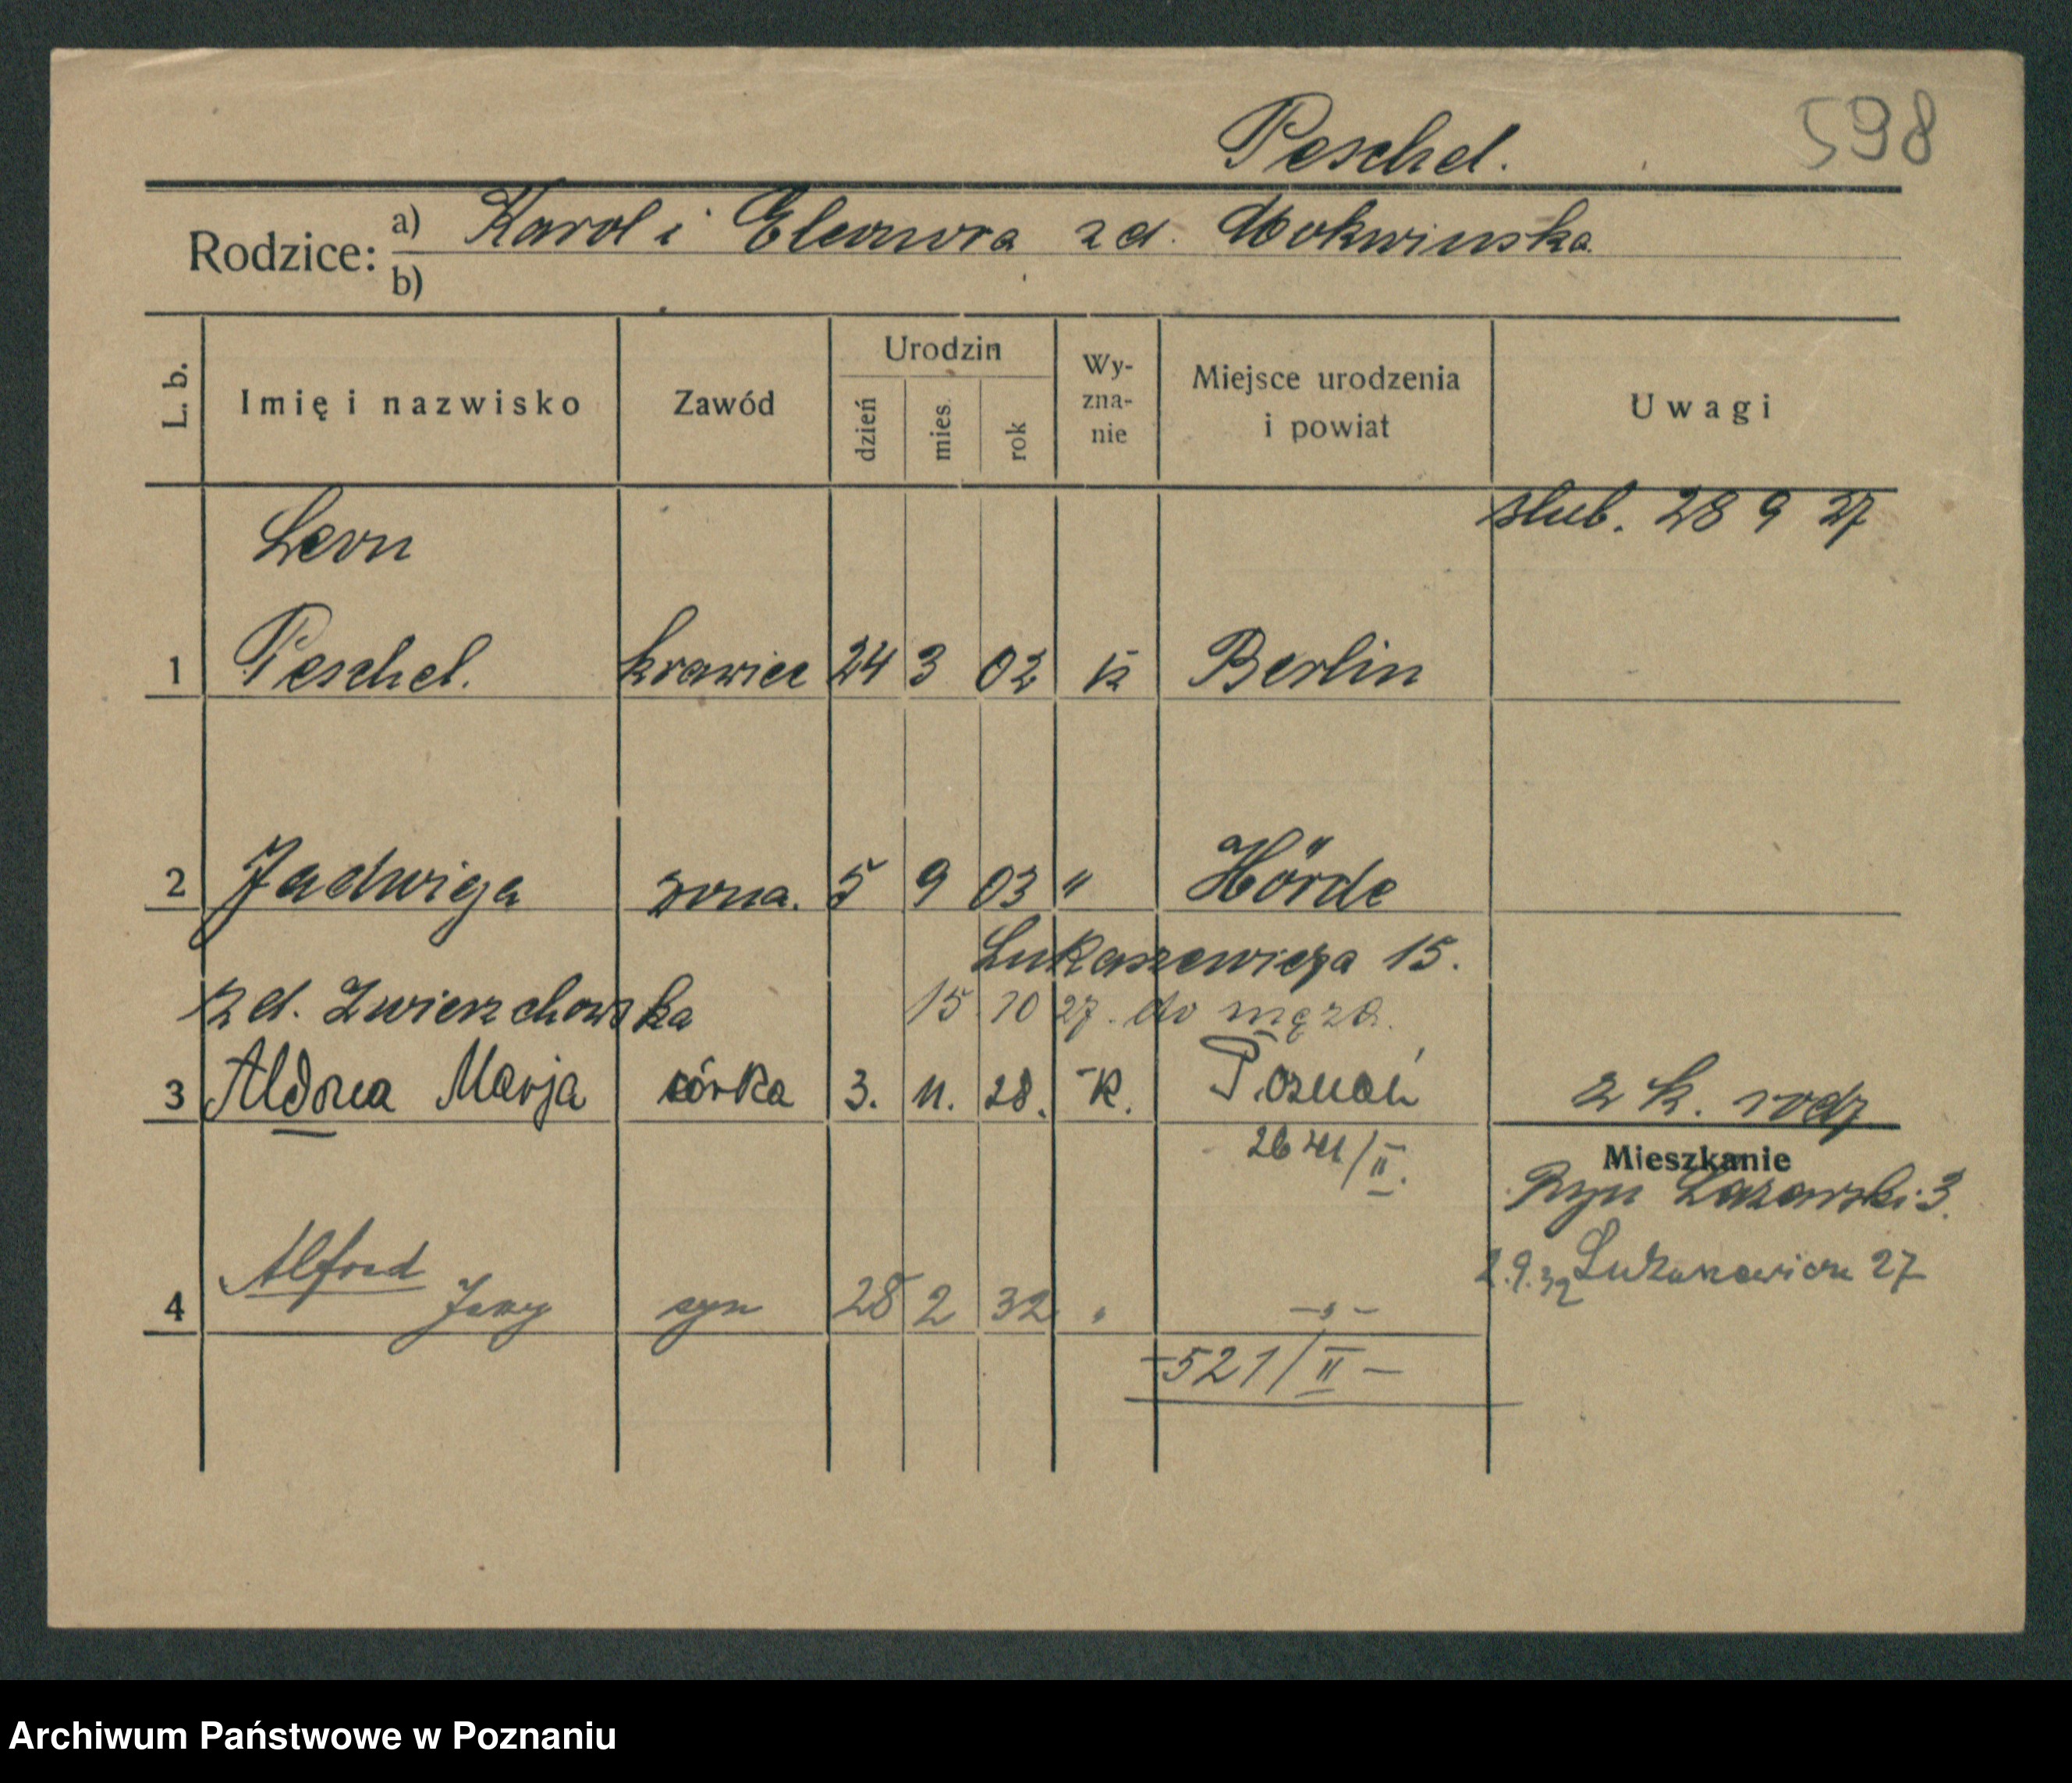 Peschel. 598
Rodzice: a) Karol i Eleonora zd. Mokwinska
b)
L. b. Imię i nazwisko Zawód Urodzin dzień mies. rok Wy-zna-nie Miejsce urodzenia i powiat Uwagi
ślub. 28 9 27
Leon
1 Peschel. krawiec 24 3 02 k Berlin
2 Jadwiga żona. 5 9 03 " Hörde
Lukaszewicza 15.
zd. Zwierzchowska 15 10 27. do męża.
3 Aldona Marja córka 3. 11. 28. k. Poznań 2 k. rodz
/II. Mieszkanie
Ryn Lazarski 3.
2.9.32 Lukaszewicza 27
4 Alfred Jerzy syn 28 2 32 " -"-
-521/II-
Archiwum Państwowe w Poznaniu